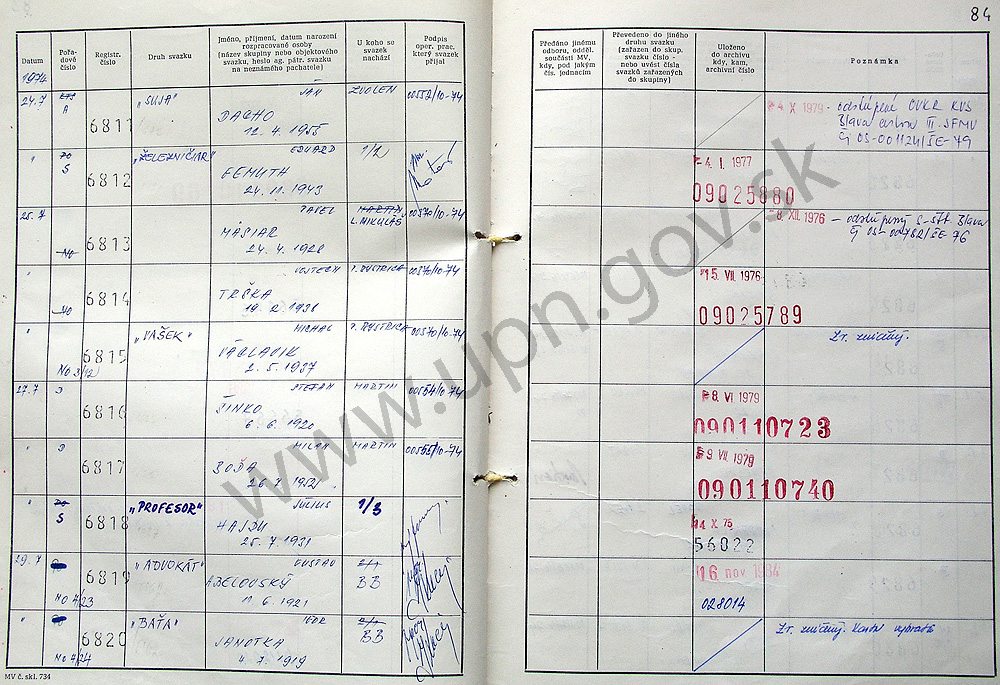 84
Datum
Pořadové číslo
Registr. číslo
Druh svazku
Jméno, příjmení, datum narození
rozpracované osoby
(název skupiny nebo objektového
svazku, heslo ag. pátr. svazku
na neznámého pachatele)
U koho se
svazek
nachází
Podpis
oper. prac.
který svazek
přijal
Předáno jinému
odboru, odděl.
součásti MV,
kdy, pod jakým
čís. jednacím
Převedeno do jiného
druhu svazku
(zařazen do skup.
svazku číslo -
nebo uvést čísla
svazků zařazených
do skupiny)
Uloženo
do archivu
kdy, kam,
archivní číslo
Poznámka
1974
24.7 A 6811 „SUJA" JÁN ZVOLEN 00552/10-74
DACHO
12. 4. 1955
4 X 1979 - odstúpené
" S 6812 „ŽELEZNIČIAR" EDUARD 1/2
24. 11. 1943
4. I. 1977
09025880
25.7 6813 PAVEL MARTIN L. MIKULÁŠ 00570/10-74
MASIAR
24. 4. 1928
8 XII. 1976
" 6814 VOJTECH P. BYSTRICA 00570/10-74
TRŠKA
15. VII. 1976
09025789
" 6815 „VAŠEK" MICHAL P. BYSTRICA 00570/10-74
VÁCLAVIK
2. 5. 1937
No 3/12
Zv. zničený.
27.7 6816 ŠTEFAN MARTIN 00554/10-74
ŠINKO
6. 6. 1920
8. VI 1979
090110723
" 6817 MILAN MARTIN
26. 7. 1921
9 VII 1979
090110740
" S 6818 „PROFESOR" JÚLIUS 1/3
HAJDU
25. 7. 1931
4 X 75
56022
29.7 6819 „ADVOKÁT" GUSTAV BB
ABELOVSKÝ
11. 6. 1921
No 4/23
16 nov 1984
028014
" 6820 „BAŤA" IGOR BB
JAMOTKA
4. 7. 1919
No 4/24
Zv. zničený.
MV č. skl. 734
www.upn.gov.sk